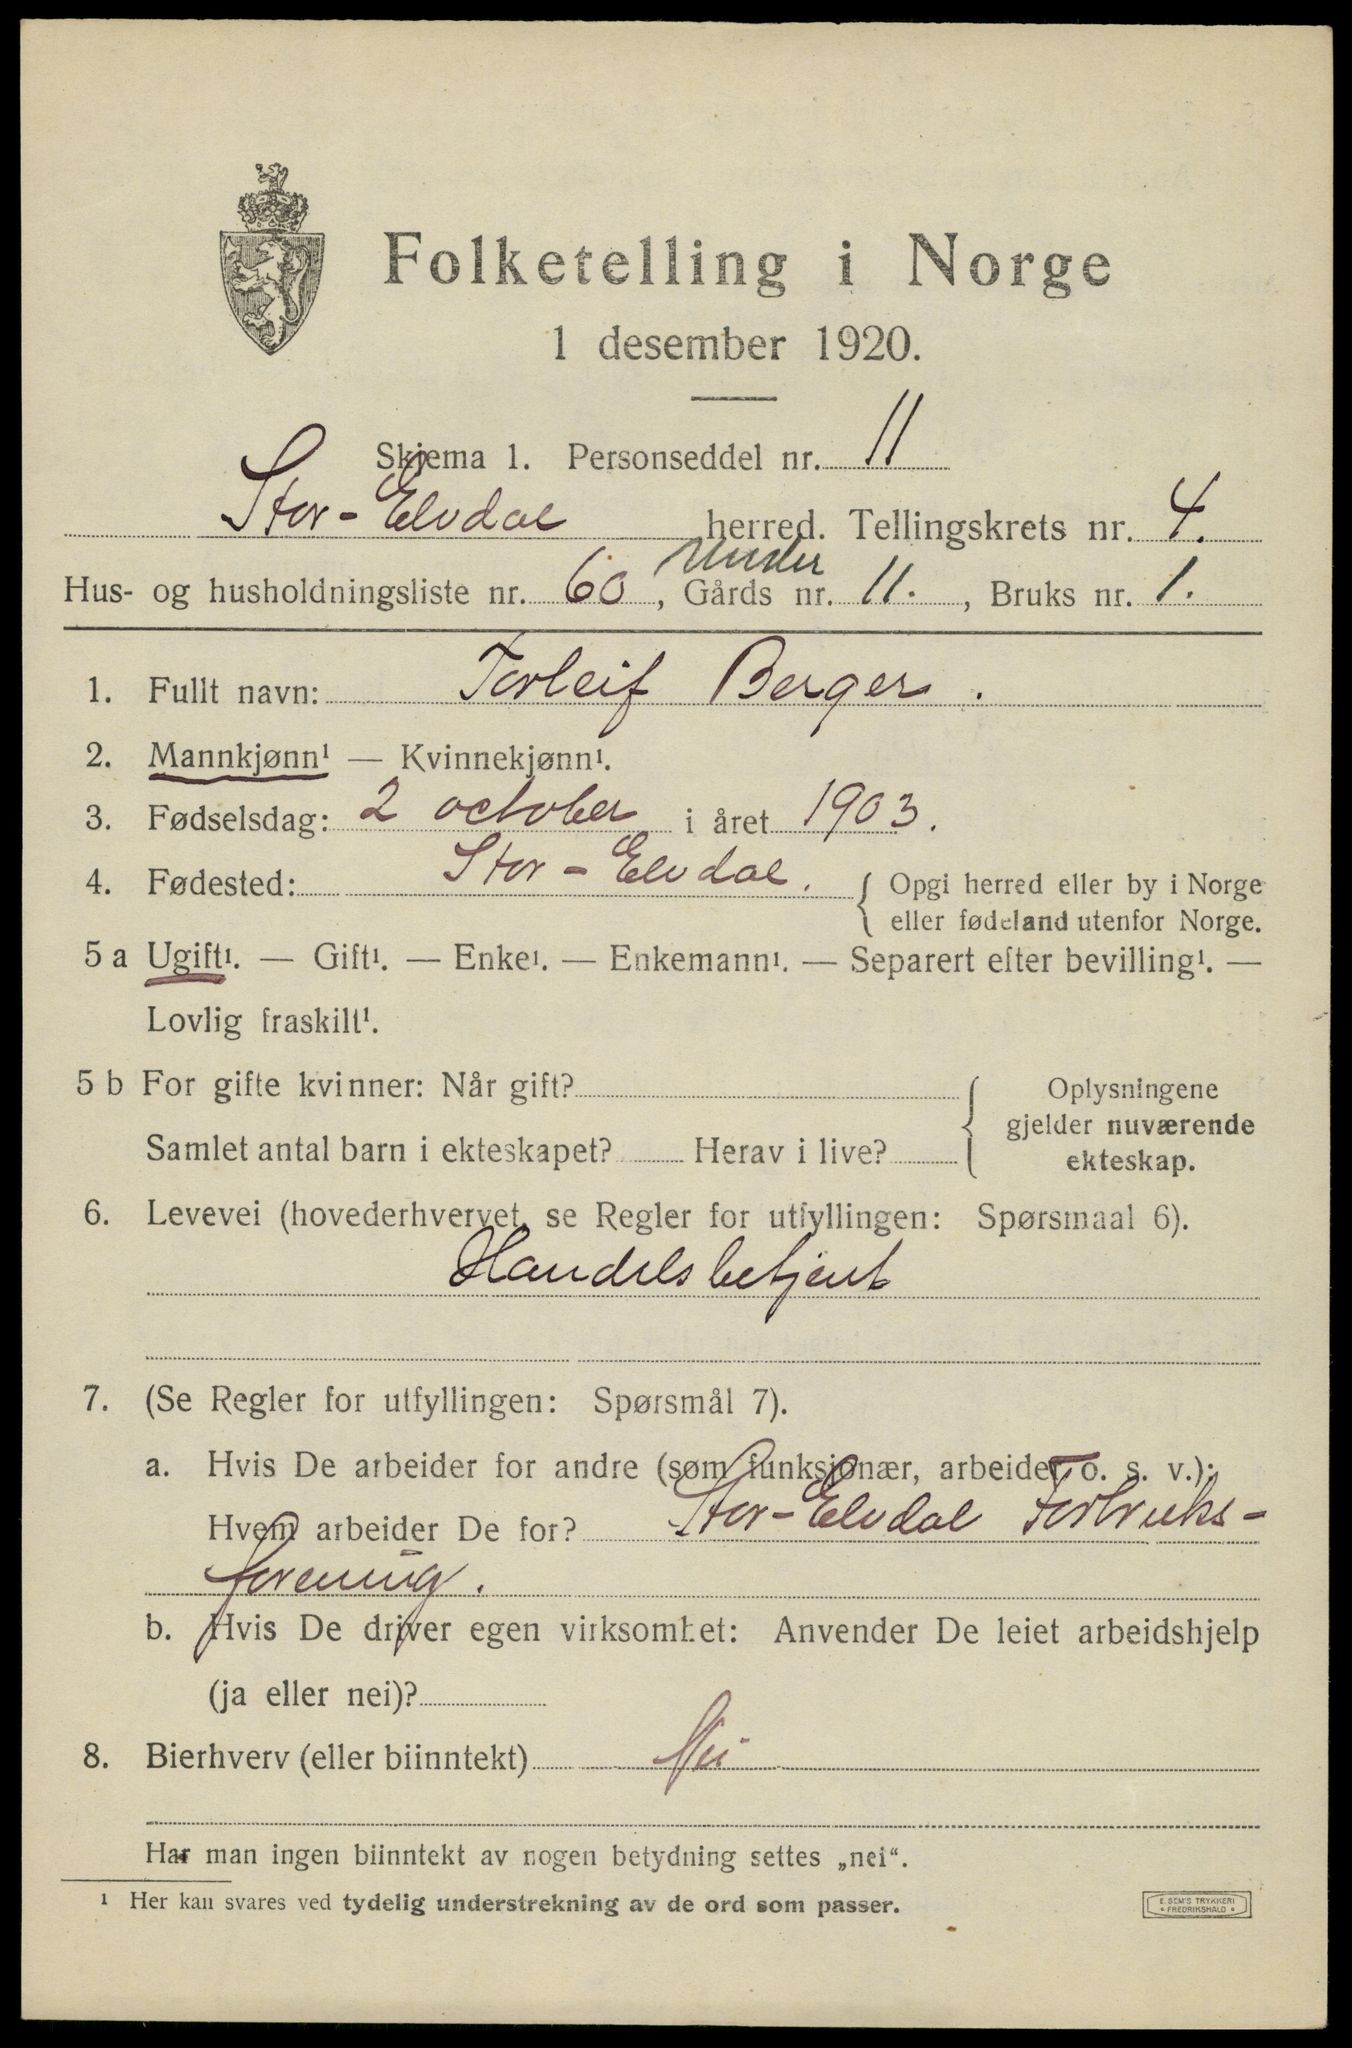 Folketelling i Norge
1 desember 1920.
Skjema 1. Personseddel nr. 11
Stor-Elvdal herred. Tellingskrets nr. 4.
under
Hus- og husholdningsliste nr. 60, Gårds nr. 11., Bruks nr. 1.
1. Fullt navn: Torleif Berger.
2. Mannkjønn¹ — Kvinnekjønn¹.
3. Fødselsdag: 2 october i året 1903.
4. Fødested: Stor-Elvdal. { Opgi herred eller by i Norge
eller fødeland utenfor Norge.
5 a Ugift¹. — Gift¹. — Enke¹. — Enkemann¹. — Separert efter bevilling¹. —
Lovlig fraskilt¹.
5 b For gifte kvinner: Når gift?
Samlet antal barn i ekteskapet? Herav i live?
Oplysningene
gjelder nuværende
ekteskap.
6. Levevei (hovederhvervet, se Regler for utfyllingen: Spørsmaal 6).
Handelsbetjent
7. (Se Regler for utfyllingen: Spørsmål 7).
a. Hvis De arbeider for andre (som funksjonær, arbeider o. s. v.):
Hvem arbeider De for? Stor-Elvdal Forbruks-
forening.
b. Hvis De driver egen virksomhet: Anvender De leiet arbeidshjelp
(ja eller nei)?
8. Bierhverv (eller biinntekt) Nei
Har man ingen biinntekt av nogen betydning settes „nei“.
¹ Her kan svares ved tydelig understrekning av de ord som passer.
E. SEM'S TRYKKERI
* FREDRIKSHALD *